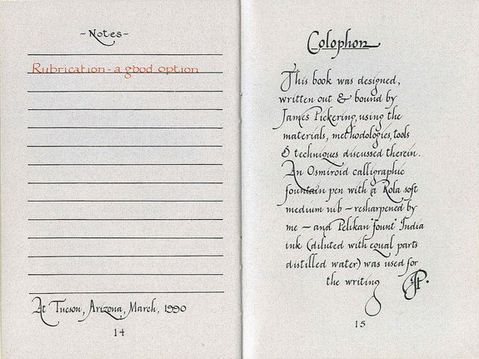 -Notes-
Rubrication - a good option
At Tucson, Arizona, March, 1990
14
Colophon
This book was designed,
written out & bound by
James Pickering, using the
materials, methodologies, tools
& techniques discussed therein.
An Osmiroid calligraphic
fountain pen with a Rola soft
medium nib – resharpened by
me – and Pelikan 'fount' India
ink (diluted with equal parts
distilled water) was used for
the writing
JP.
15